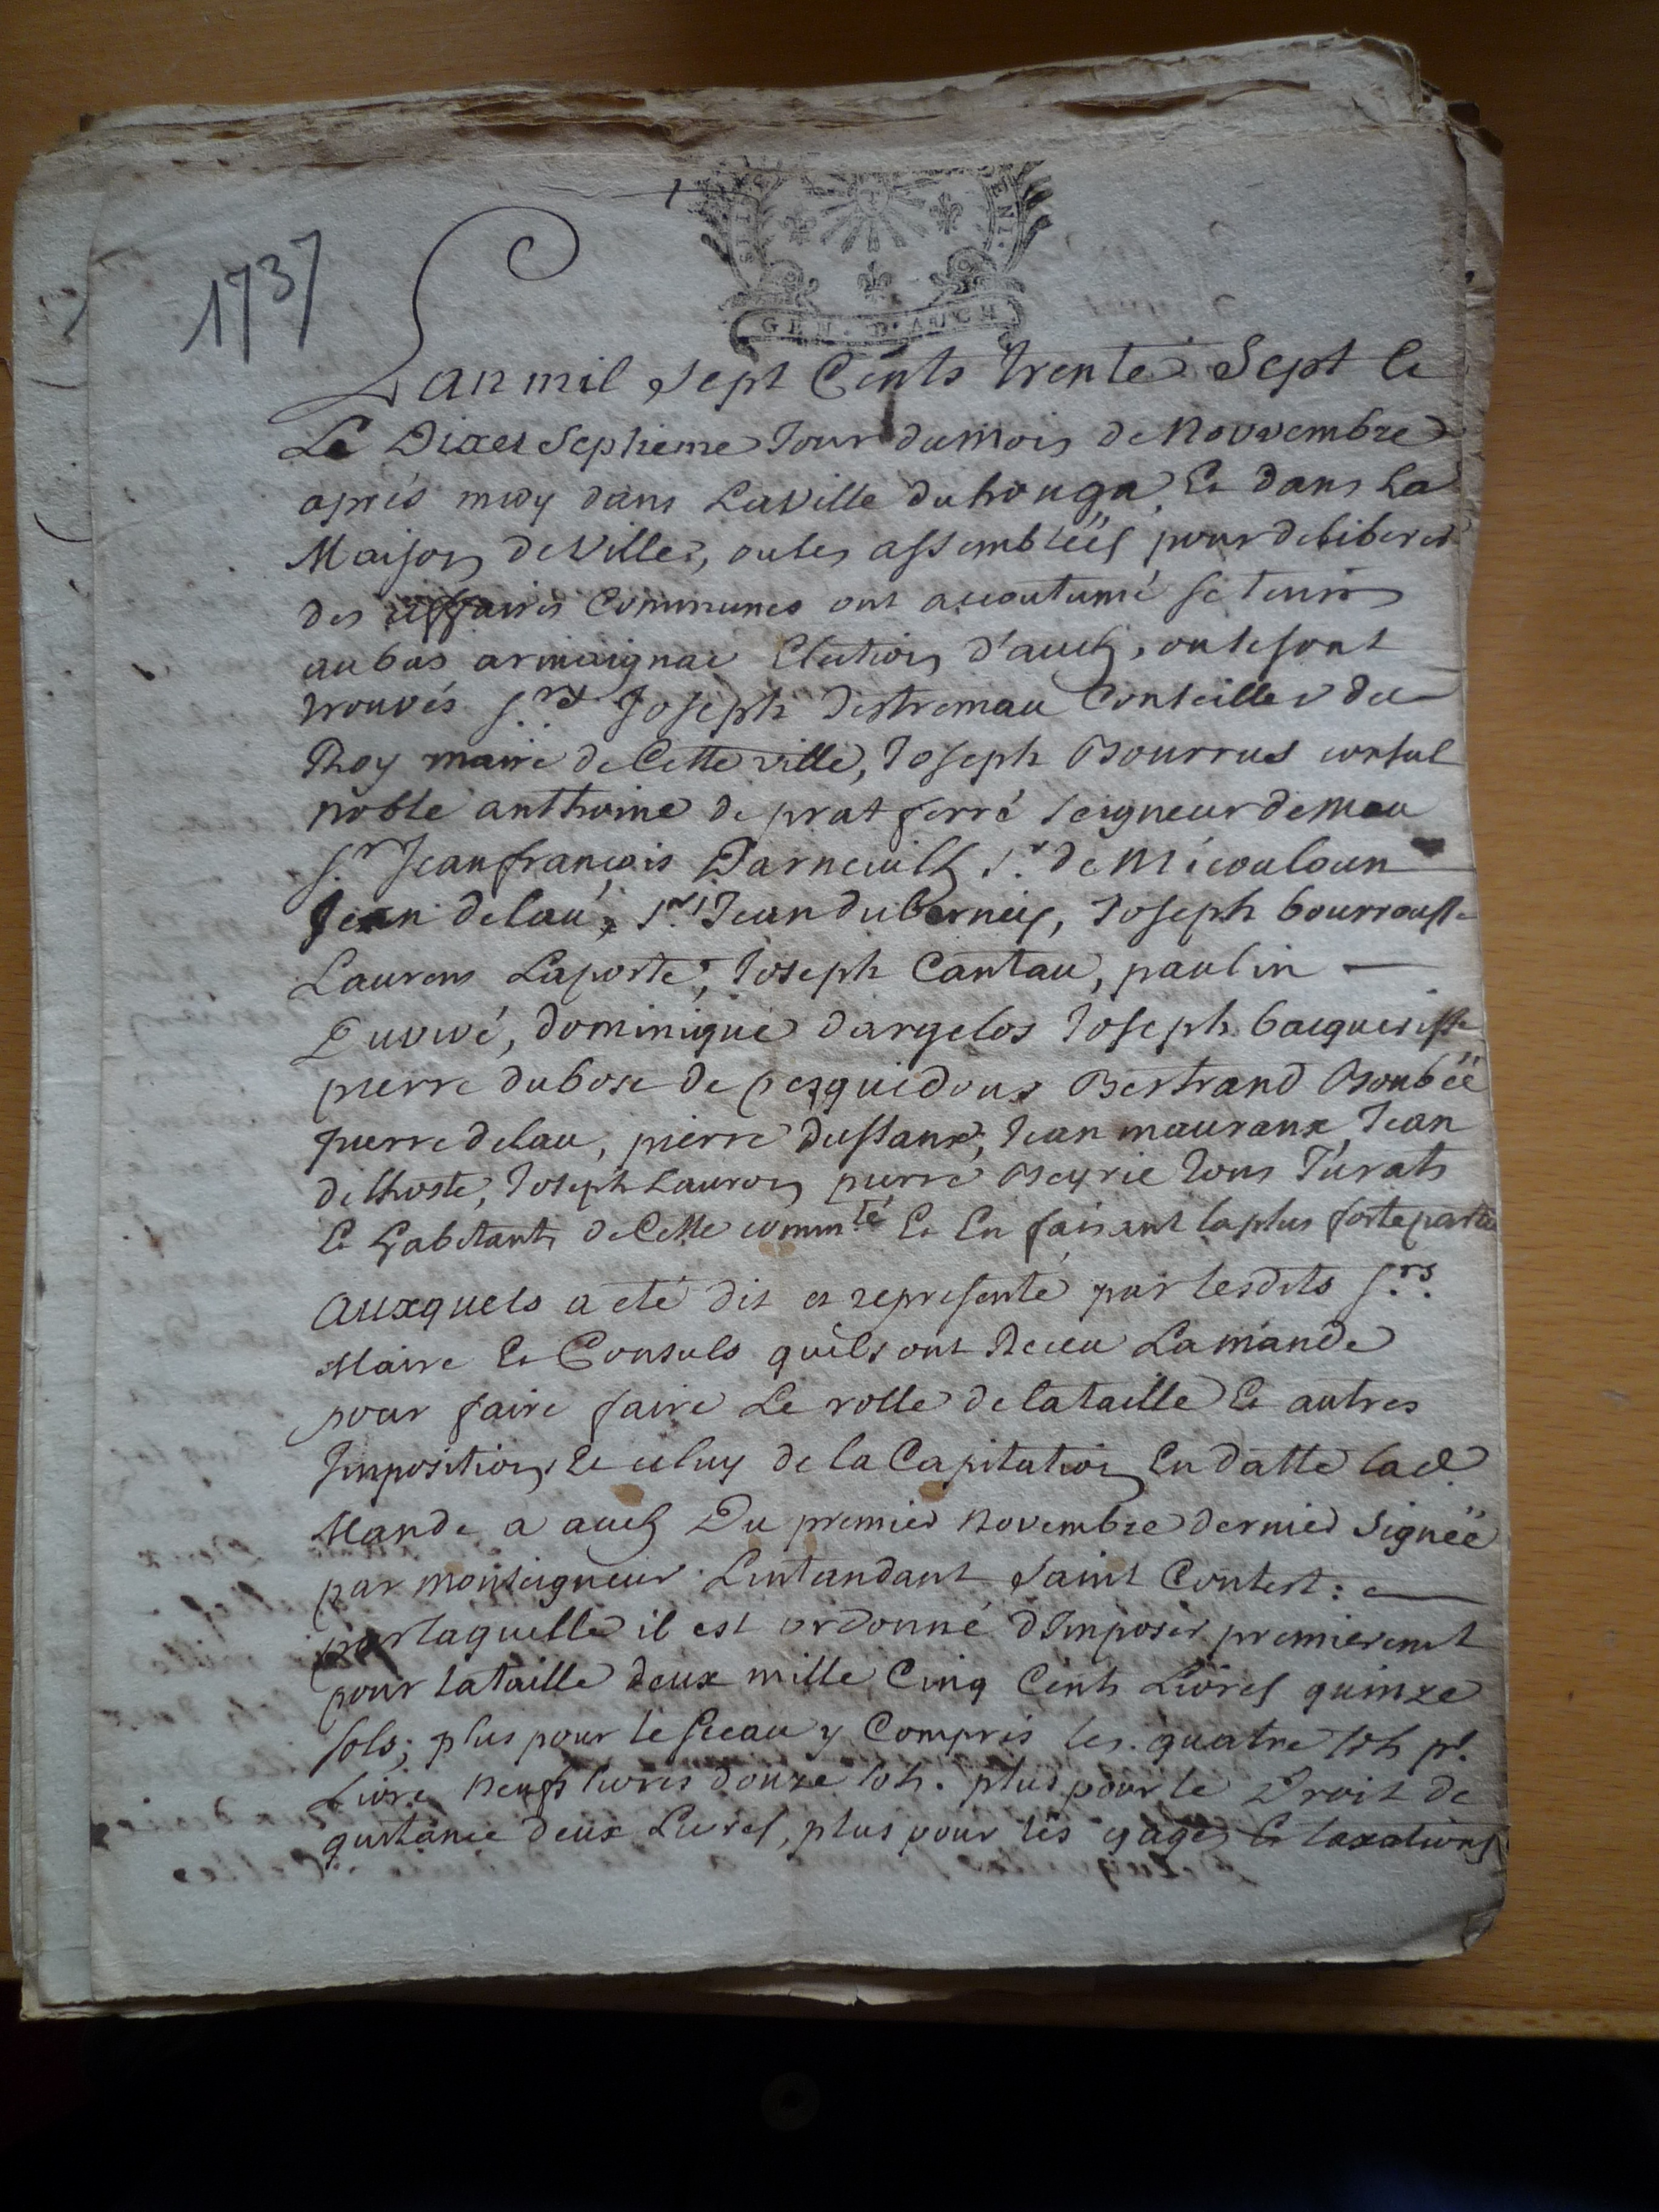 1737
GEN. D'AUCH
Lan mil sept Cents trente Sept Et
Le Dixet Septieme Jour du mois de Novvembre
aprés midy dans La ville du houga Et dans La
Maison de Ville, ou les assemblëés pour deliberer
des affaires Communes ont acoutumé se tenir
au bas armaignac Election d'auch, ou se sont
trouvés Joseph destremau Conseiller du
Roy maire de Cette ville, Joseph Bourrus consul
noble anthoine de prat ferré seigneur de mau
Sr Jean françois Darneuilh Sr de Micouloun
Jean delau, Sr Jean duberneis, Joseph bourrouss
Laurens Laporte, Joseph Cantau, paulin
Duvivé, dominique dargelos Joseph bacquerisse
pierre dubosc de pesquidoux Bertrand Boubëe
pierre delau, pierre dussaux, Jean mauraux Jean
delhoste, Joseph Lauron pierre Beyrie tous Jurats
Et habitants de Cette commté Et En faisant la plus forte partie
Auxquels a eté dit et representé par lesdits Srs
Maire Et Consuls quils ont Receu La mande
pour faire faire Le rolle de la taille Et autres
Imposition Et celuy de la Capitation En datte lad
Mande a auch Du premier novembre dernier Signëe
par monseigneur Lintandant Saint Contest:
par laquelle il est ordonné dImposer premierement
pour la taille deux mille Cinq Cents Livres quinze
sols; plus pour le sceau y Compris les quatre sols pr
Livre neuf livres douze sols. plus pour le Droit de
quitance deux Livres, plus pour les gages Et taxations